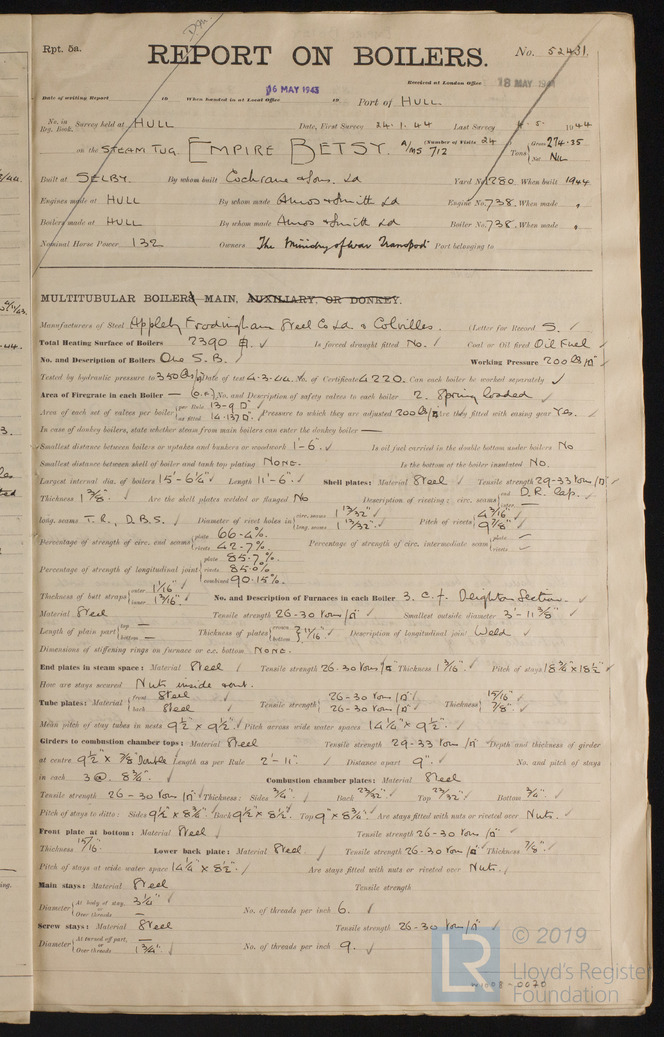 Rpt. 5a.
REPORT ON BOILERS.
No. 52431.
Received at London Office 18 MAY
Date of writing Report 19 When handed in at Local Office 16 MAY 1943 19 Port of HULL.
No. in Reg. Book. Survey held at HULL Date, First Survey 24.1.44 Last Survey 4.5. 1944
on the STEAM TUG. EMPIRE BETSY. A/MS 712 (Number of Visits 24) Tons Gross 274.35 Net Nil
Built at SELBY. By whom built Cochrane & Sons. Ld Yard No. 1280 When built 1944.
Engines made at HULL By whom made Amos & Smith Ld Engine No. 738. When made "
Boilers made at HULL By whom made Amos & Smith Ld Boiler No. 738. When made "
Nominal Horse Power 132 Owners The Ministry of War Transport Port belonging to
MULTITUBULAR BOILERS MAIN, AUXILIARY, OR DONKEY.
Manufacturers of Steel Appleby Frodingham Steel Co Ld & Colvilles. (Letter for Record S. ✓
Total Heating Surface of Boilers 2390 Is forced draught fitted No. ✓ Coal or Oil fired Oil Fuel ✓
No. and Description of Boilers One S.B. ✓ Working Pressure 200 lbs/□" ✓
Tested by hydraulic pressure to 350 lbs/□" Date of test 4-3-44. No. of Certificate 4220. Can each boiler be worked separately ✓
Area of Firegrate in each Boiler — (O.F.) No. and Description of safety valves to each boiler 2. Spring loaded
Area of each set of valves per boiler {per Rule 13.9 □" as fitted 14.137 □" Pressure to which they are adjusted 200 lbs/□" Are they fitted with easing gear Yes. ✓
In case of donkey boilers, state whether steam from main boilers can enter the donkey boiler —
Smallest distance between boilers or uptakes and bunkers or woodwork 1'-6" ✓ Is oil fuel carried in the double bottom under boilers No
Smallest distance between shell of boiler and tank top plating None. Is the bottom of the boiler insulated No.
Largest internal dia. of boilers 15'-6¼" ✓ Length 11'-6" ✓ Shell plates: Material Steel ✓ Tensile strength 29-33 Tons/□" ✓
Thickness 1⅜" ✓ Are the shell plates welded or flanged No Description of riveting: circ. seams {end D.R. Lap. ✓ inter. —
long. seams T.R., D.B.S. ✓ Diameter of rivet holes in {circ. seams 1 13/32" ✓ long. seams 1 13/32" ✓ Pitch of rivets {4 3/16" ✓ 9 7/8" ✓
Percentage of strength of circ. end seams {plate 66.4% rivets 42.7% Percentage of strength of circ. intermediate seam {plate — rivets —
Percentage of strength of longitudinal joint {plate 85.7% rivets 85.0% combined 90.15%
Thickness of butt straps {outer 1 1/16" ✓ inner 1 3/16" ✓ No. and Description of Furnaces in each Boiler 3. C.F. Deighton Section. ✓
Material Steel Tensile strength 26-30 Tons/□" ✓ Smallest outside diameter 3'-11⅜" ✓
Length of plain part {top — bottom — Thickness of plates {crown bottom } 11/16" ✓ Description of longitudinal joint Weld ✓
Dimensions of stiffening rings on furnace or c.c. bottom None.
End plates in steam space: Material Steel ✓ Tensile strength 26-30 Tons/□" Thickness 1 3/16" ✓ Pitch of stays 18¾" × 18½" ✓
How are stays secured Nuts inside & out.
Tube plates: Material {front Steel back Steel ✓ Tensile strength {26-30 Tons/□" ✓ 26-30 Tons/□" ✓ Thickness {15/16" 7/8" ✓
Mean pitch of stay tubes in nests 9½" × 9½" ✓ Pitch across wide water spaces 14¼" × 9½" ✓
Girders to combustion chamber tops: Material Steel Tensile strength 29-33 Tons/□" ✓ Depth and thickness of girder
at centre 9½" × 7/8" Double. Length as per Rule 2'-11" ✓ Distance apart 9" ✓ No. and pitch of stays
in each 3 @. 8¾". ✓ Combustion chamber plates: Material Steel
Tensile strength 26-30 Tons/□" ✓ Thickness: Sides ¾" ✓ Back 23/32" ✓ Top 23/32" ✓ Bottom ¾" ✓
Pitch of stays to ditto: Sides 9½" × 8¾" ✓ Back 9½" × 8½" Top 9" × 8¾" ✓ Are stays fitted with nuts or riveted over Nuts. ✓
Front plate at bottom: Material Steel Tensile strength 26-30 Tons/□" ✓
Thickness 15/16" ✓ Lower back plate: Material Steel ✓ Tensile strength 26-30 Tons/□" ✓ Thickness 7/8" ✓
Pitch of stays at wide water space 14¼" × 8½" ✓ Are stays fitted with nuts or riveted over Nuts. ✓
Main stays: Material Steel Tensile strength
Diameter {At body of stay, 3¼" ✓ or Over threads — No. of threads per inch 6. ✓
Screw stays: Material Steel Tensile strength 26-30 Tons/□" ✓
Diameter {At turned off part, — or Over threads 1¾" ✓ No. of threads per inch 9. ✓
LR © 2019
Lloyd's Register
Foundation